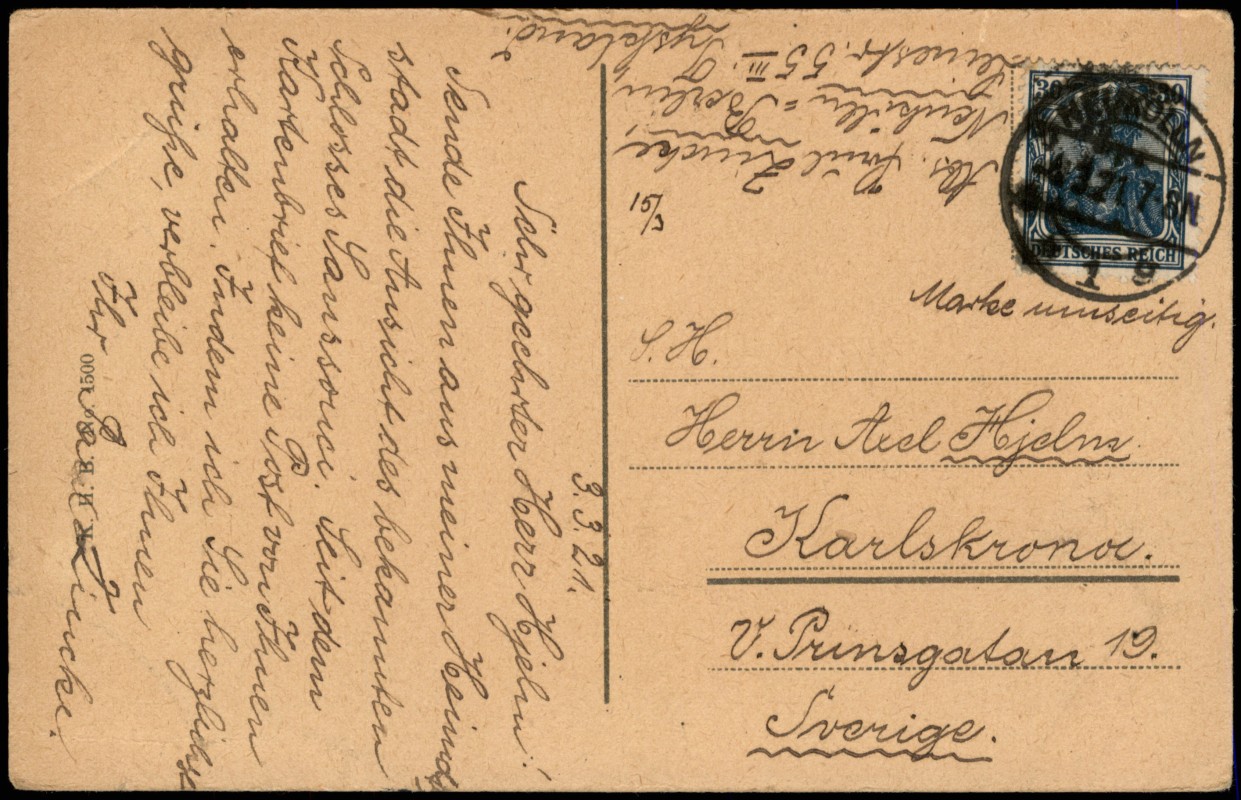 3. 3. 21.
Sehr geehrter Herr Hjelm!
Sende Ihnen aus meiner Heimat
stadt die Ansicht des bekannten
Schlosses Sanssouci. Seit dem
Kartenbrief keine Post von Ihnen
erhalten. Indem ich Sie herzlichst
grüße, verbleibe ich Ihnen
Ihr
P. Lincke.
1500
Abs. Paul Lincke,
Neukölln = Berlin
Leinestr. 55 III
Tyskland.
15/3
30
DEUTSCHES REICH
NEUKÖLLN
3.21. 7-8N
1 g
Marke umseitig.
S. H.
Herrn Axel Hjelm.
Karlskrona.
V. Prinsgatan 19.
Sverige.